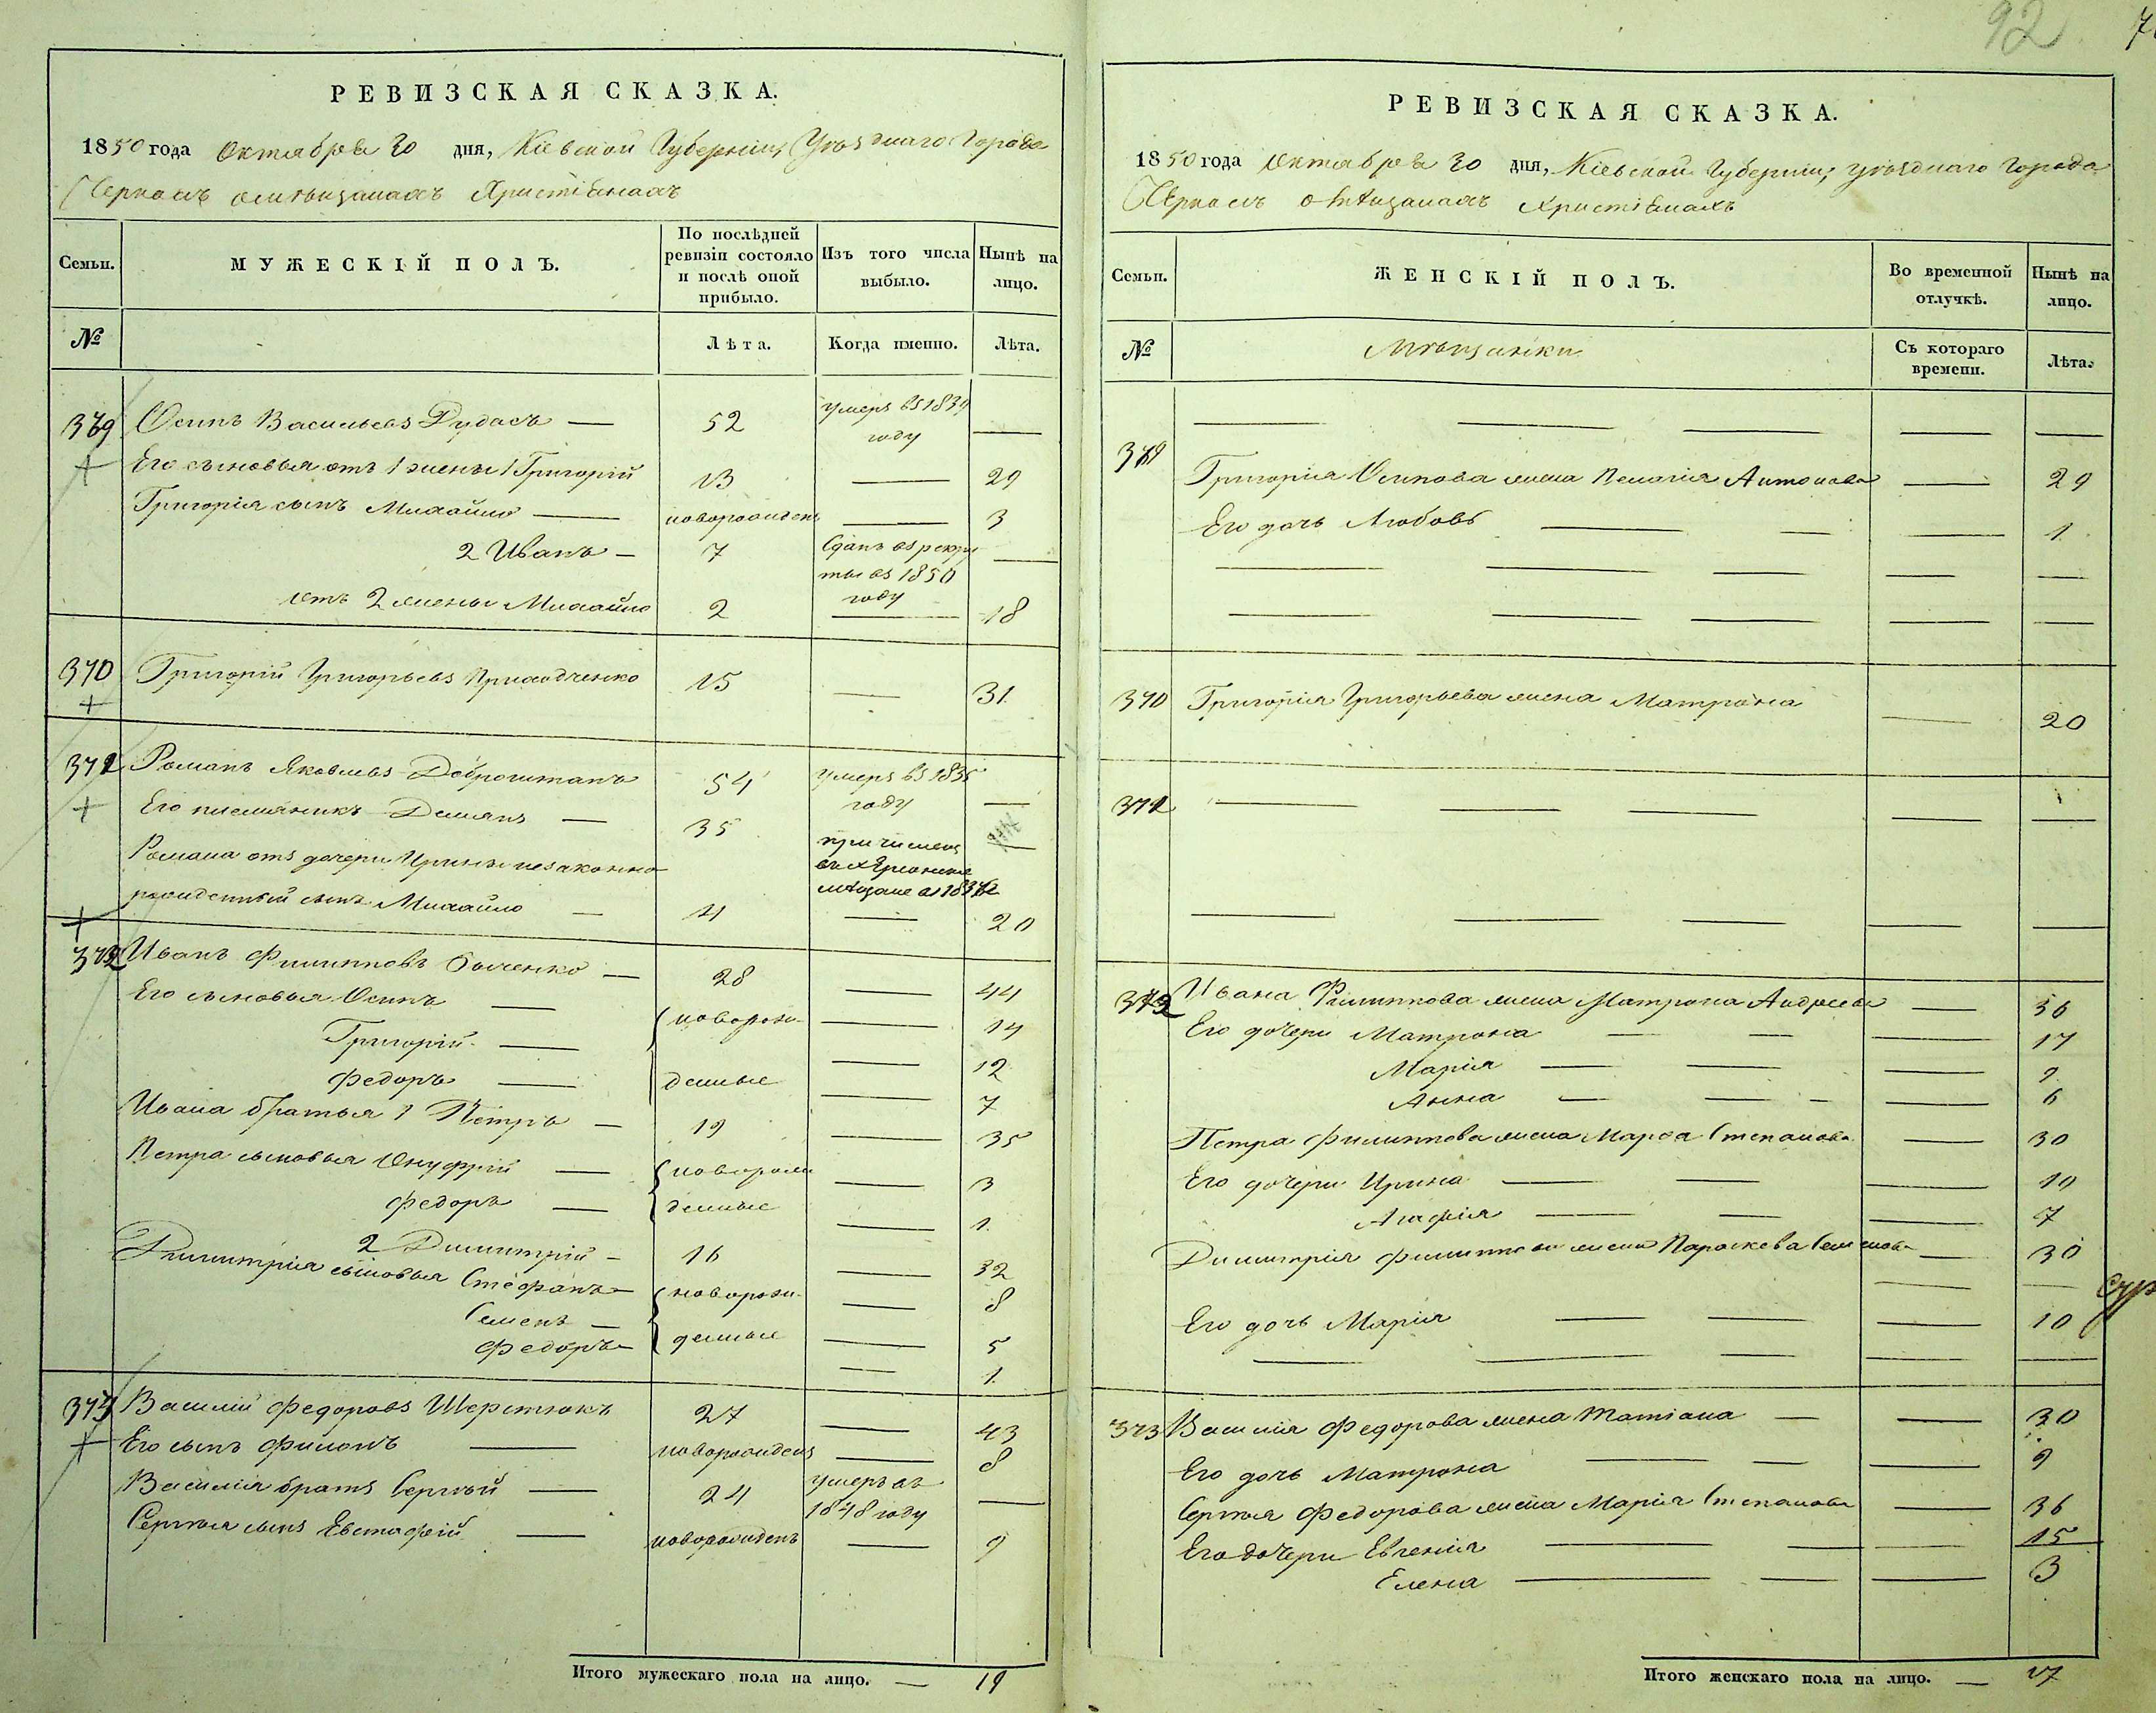 92
РЕВИЗСКАЯ СКАЗКА.
1850 года Октября 30 дня, Кіевской Губерніи, Уѣзднаго Города
Черкасъ о мѣщанахъ Христіанахъ
Семьи. МУЖЕСКІЙ ПОЛЪ. По послѣдней ревизіи состояло и послѣ оной прибыло. Изъ того числа выбыло. Нынѣ на лицо.
№ Лѣта. Когда именно. Лѣта.
369 Осипъ Васильевъ Дудасъ — 52 умеръ въ 1839 году —
Его сыновья отъ 1 жены 1 Григорій 13 — 29
Григорія сынъ Михайло — новорожденъ — 3
2 Иванъ — 7 Сданъ въ рекруты въ 1850 году —
отъ 2 жены Михайло 2 — 18
370 Григорій Григорьевъ Приходченко 15 — 31
371 Романъ Яковлевъ Доброштанъ 54 умеръ въ 1835 году —
Его племяникъ Демянъ — 35 причисленъ въ мѣщане въ —
Романа отъ дочери Ирины незаконно
рожденный сынъ Михайло — 4 — 20
372 Иванъ Филипповъ — 28 — 44
Его сыновья Осипъ — новорож- — 14
Григорій — — 12
Федоръ — денные — 7
Ивана братья 1 Петръ — 19 — 35
Петра сыновья Онуфрій — новорож — 3
Федоръ — денные — 1
2 Димитрій — 16 — 32
Димитрія сыновья Стефанъ — новорож- — 8
Семенъ — — 5
Федоръ — денные — 1
373 Василій Федоровъ Шереметюкъ 27 — 43
Его сынъ Филонъ — новорожденъ — 8
Василія братъ Сергѣй — 24 умеръ въ 1848 году —
Сергѣя сынъ Евстафій — новорожденъ — 9
Итого мужескаго пола на лицо. — 19
РЕВИЗСКАЯ СКАЗКА.
1850 года Октября 30 дня, Кіевской Губерніи, уѣзднаго Города
Черкасъ о мѣщанахъ Христіанахъ
Семьи. ЖЕНСКІЙ ПОЛЪ. Во временной отлучкѣ. Нынѣ на лицо.
№ Мѣщанки Съ котораго времени. Лѣта.
369 Григорія Осипова жена Пелагія Антонова — 29
Его дочь Любовь — 1
370 Григорія Григорьева жена Матрона — 20
371 —
372 Ивана Филиппова жена Матрона Андреева — 36
Его дочери Матрона — 17
Марія — 9
Анна — 6
Петра Филиппова жена Марѳа Степанова — 30
Его дочери Ирина — 10
Агафія — 7
Димитрія Филиппова жена Параскева Семенова — 30
Его дочь Марія — 10
373 Василія Федорова жена Татіана — 30
Его дочь Матрона — 9
Сергѣя Федорова жена Марія Степанова — 36
Его дочери Евгенія — 15
Елена — 3
Итого женскаго пола на лицо. — 17